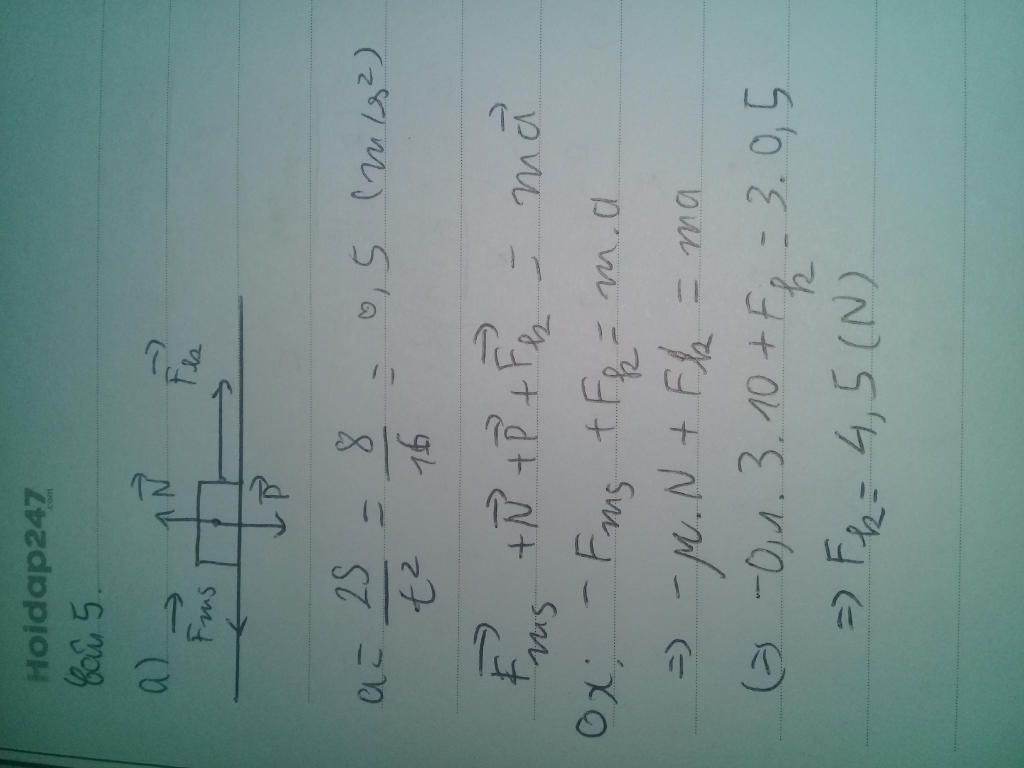 Hoidap247
.com
Câu 5.
a)
N
Fms
Fk
P
a = 2S/t² = 8/16 = 0,5 (m/s²)
Fms + N + P + Fk = ma
Ox: - Fms + Fk = m.a
=> - μ.N + Fk = ma
(=> -0,1.3.10 + Fk = 3.0,5
=> Fk = 4,5 (N)